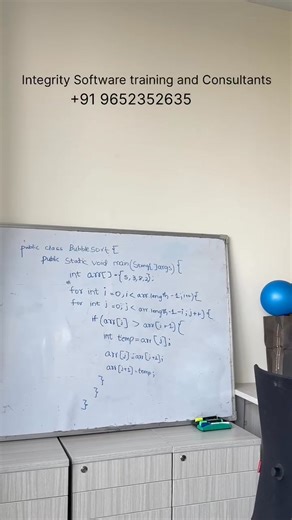 Integrity Software training and Consultants
+91 9652352635
public class BubbleSort {
public static void main(String[] args) {
int arr[] = {5,3,8,2};
for int i =0; i < arr.length-1; i++){
for int j =0; j< arr.length-1-i; j++){
if (arr[j] > arr[j+1]{
int temp=arr[j];
arr[j]=arr[j+1];
arr[j+1]=temp;
}
}
}